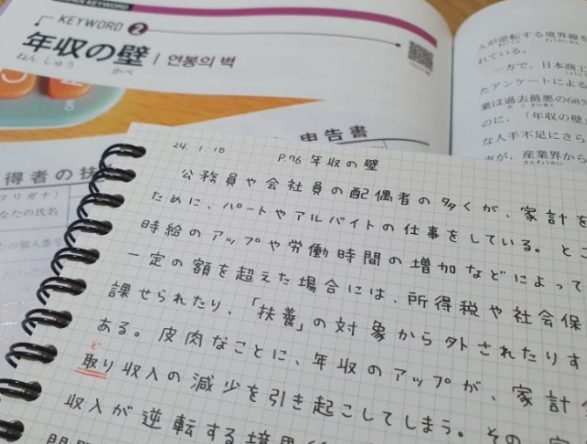 KEYWORD 2
年収の壁 / 연봉의 벽
ねんしゅう かべ
申告書
得者の扶
フリガナ)
なたの氏名
人が逆転する境界線を
れている。
一方で、日本商工
たアンケートによる
業は過去最悪の66
のに、「年収の壁
な人手不足にさら
声が、産業界から
24.1.10 P.76 年収の壁
公務員や会社員の配偶者の多くが、家計を
ために、パートやアルバイトの仕事をしている。とこ
時給のアップや労働時間の増加などによって
一定の額を超えた場合には、所得税や社会保
課せられたり、「扶養」の対象から外されたりす
ある。皮肉なことに、年収のアップが、家計
ど
取り収入の減少を引き起こしてしまう。その
収入が逆転する境界